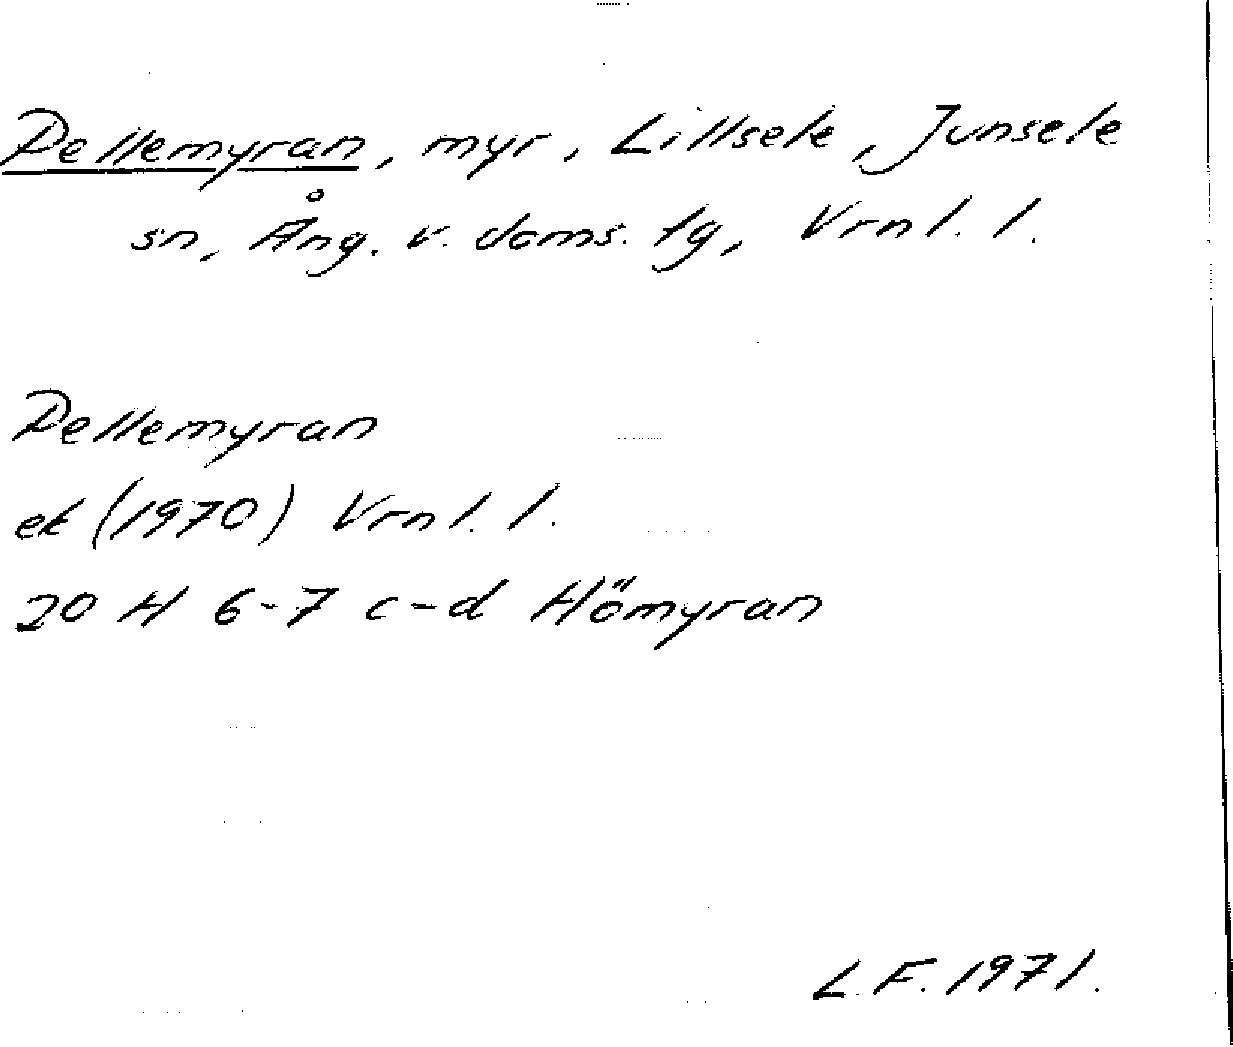 Pellemyran, myr, Lillsele, Junsele
sn, Ång. v. doms. lg, Vrnl. l.
Pellemyran
ek (1970) Vrnl. l.
20 H 6-7 c-d Hömyran
L.F. 1971.